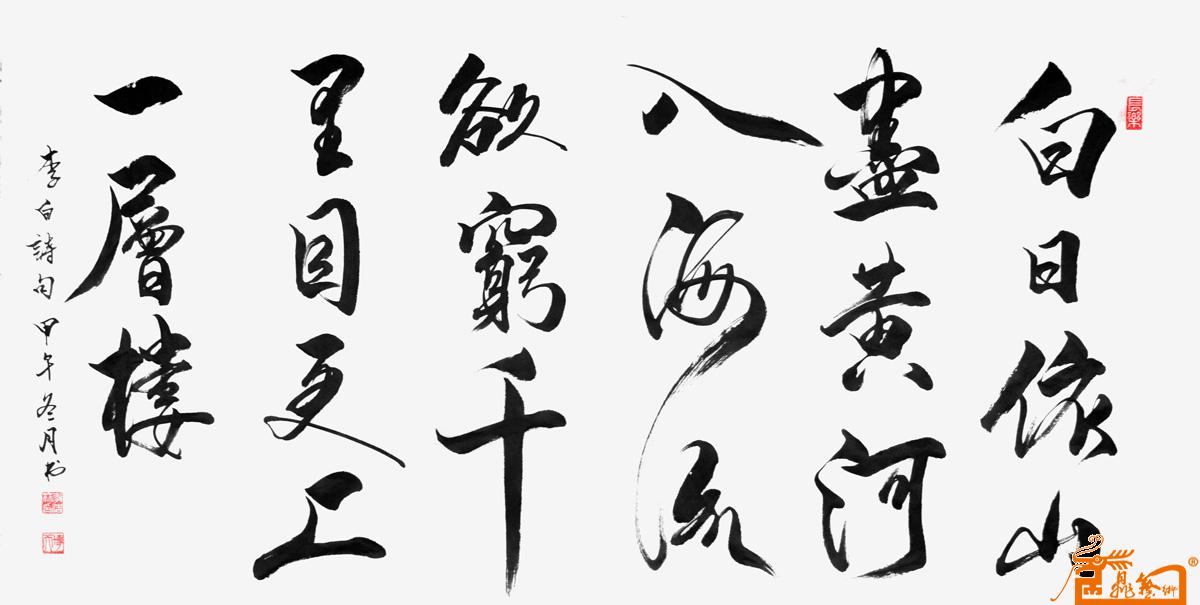 白日依山
盡黄河
入海流
欲窮千
里目更上
一層樓
李白詩句甲午冬月
長樂